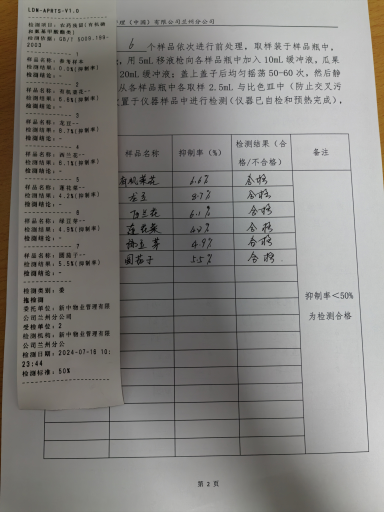 LDN-APRTS-V1.0
检测项目: 农药残留(有机磷
和氨基甲酸酯类)
检测依据: GB/T 5009.199-
2003
1
样品名称: 参考样本
检测结果: 0.0%(抑制率)
检测结论: -
2
样品名称: 有机菜花-
检测结果: 6.6%(抑制率)
检测结论: -
3
样品名称: 龙豆--
检测结果: 8.7%(抑制率)
检测结论: -
4
样品名称: 西兰花--
检测结果: 6.1%(抑制率)
检测结论: -
5
样品名称: 莲花菜--
检测结果: 4.2%(抑制率)
检测结论: -
6
样品名称: 绿豆芽--
检测结果: 4.9%(抑制率)
检测结论: -
7
样品名称: 圆茄子--
检测结果: 5.5%(抑制率)
检测结论: -
检测类别: 委
托检测
委托单位: 新中物业管理有限
公司兰州分公司
受检单位: 2
检测机构: 新中物业管理有限
公司兰州分公
检测日期: 2024-07-16 10:
23:44
检测标准: 50%
理(中国)有限公司兰州分公司
6 个样品依次进行前处理, 取样装于样品瓶中,
用 5mL 移液枪向各样品瓶中加入 10mL 缓冲液, 瓜果
20mL 缓冲液; 盖上盖子后均匀摇荡 50-60 次, 然后静
从各样品瓶中各取样 2.5mL 与比色皿中(防止交叉污
置于仪器样品中进行检测(仪器已自检和预热完成)。
样品名称 抑制率(%) 检测结果(合格/不合格) 备注
有机菜花 6.6% 合格
龙豆 8.7% 合格
西兰花 6.1% 合格
莲花菜 4.2% 合格
绿豆芽 4.9% 合格
圆茄子 5.5% 合格
抑制率<50%
为检测合格
第 2 页